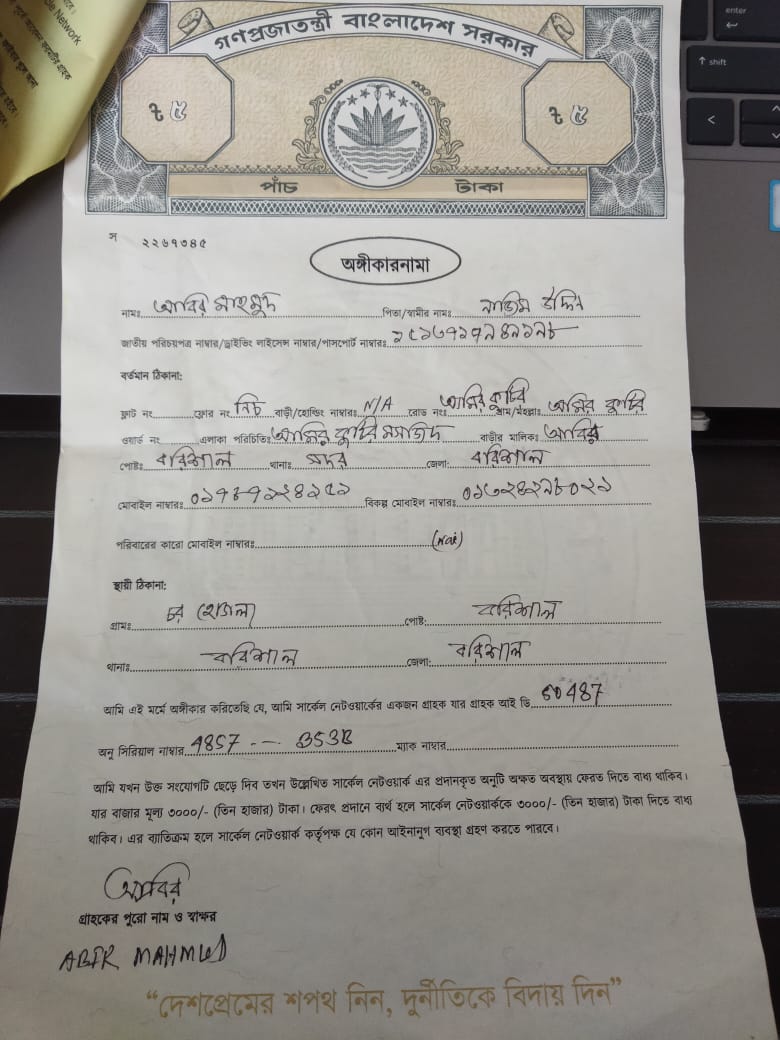 গণপ্রজাতন্ত্রী বাংলাদেশ সরকার
৳ ৫ ৳ ৫
পাঁচ টাকা
স ২২৬৭৩৪৫
অঙ্গীকারনামা
নামঃ আবির মাহমুদ পিতা/স্বামীর নামঃ নাজিম উদ্দিন
জাতীয় পরিচয়পত্র নাম্বার/ড্রাইভিং লাইসেন্স নাম্বার/পাসপোর্ট নাম্বারঃ
বর্তমান ঠিকানা:
ফ্লাট নং ফ্লোর নং নিচ বাড়ী/হোল্ডিং নাম্বারঃ N/A রোড নংঃ আমির কুটির গ্রাম/মহল্লাঃ আমির কুটির
ওয়ার্ড নং এলাকা পরিচিতিঃ আমির কুটির মসজিদ বাড়ীর মালিকঃ আবির
পোষ্টঃ বরিশাল থানাঃ সদর জেলা: বরিশাল
মোবাইল নাম্বারঃ বিকল্প মোবাইল নাম্বারঃ
পরিবারের কারো মোবাইল নাম্বারঃ
স্থায়ী ঠিকানা:
গ্রামঃ চর পোষ্ট: বরিশাল
থানাঃ বরিশাল জেলা: বরিশাল
আমি এই মর্মে অঙ্গীকার করিতেছি যে, আমি সার্কেল নেটওয়ার্কের একজন গ্রাহক যার গ্রাহক আই ডি 50487
অনু সিরিয়াল নাম্বার 4857 -- B53B ম্যাক নাম্বার
আমি যখন উক্ত সংযোগটি ছেড়ে দিব তখন উল্লেখিত সার্কেল নেটওয়ার্ক এর প্রদানকৃত অনুটি অক্ষত অবস্থায় ফেরত দিতে বাধ্য থাকিব।
যার বাজার মূল্য ৩০০০/- (তিন হাজার) টাকা। ফেরৎ প্রদানে ব্যর্থ হলে সার্কেল নেটওয়ার্ককে ৩০০০/- (তিন হাজার) টাকা দিতে বাধ্য
থাকিব। এর ব্যাতিক্রম হলে সার্কেল নেটওয়ার্ক কর্তৃপক্ষ যে কোন আইনানুগ ব্যবস্থা গ্রহণ করতে পারবে।
আবির
গ্রাহকের পুরো নাম ও স্বাক্ষর
ABIR MAHMUD
“দেশপ্রেমের শপথ নিন, দুর্নীতিকে বিদায় দিন”
enter
shift